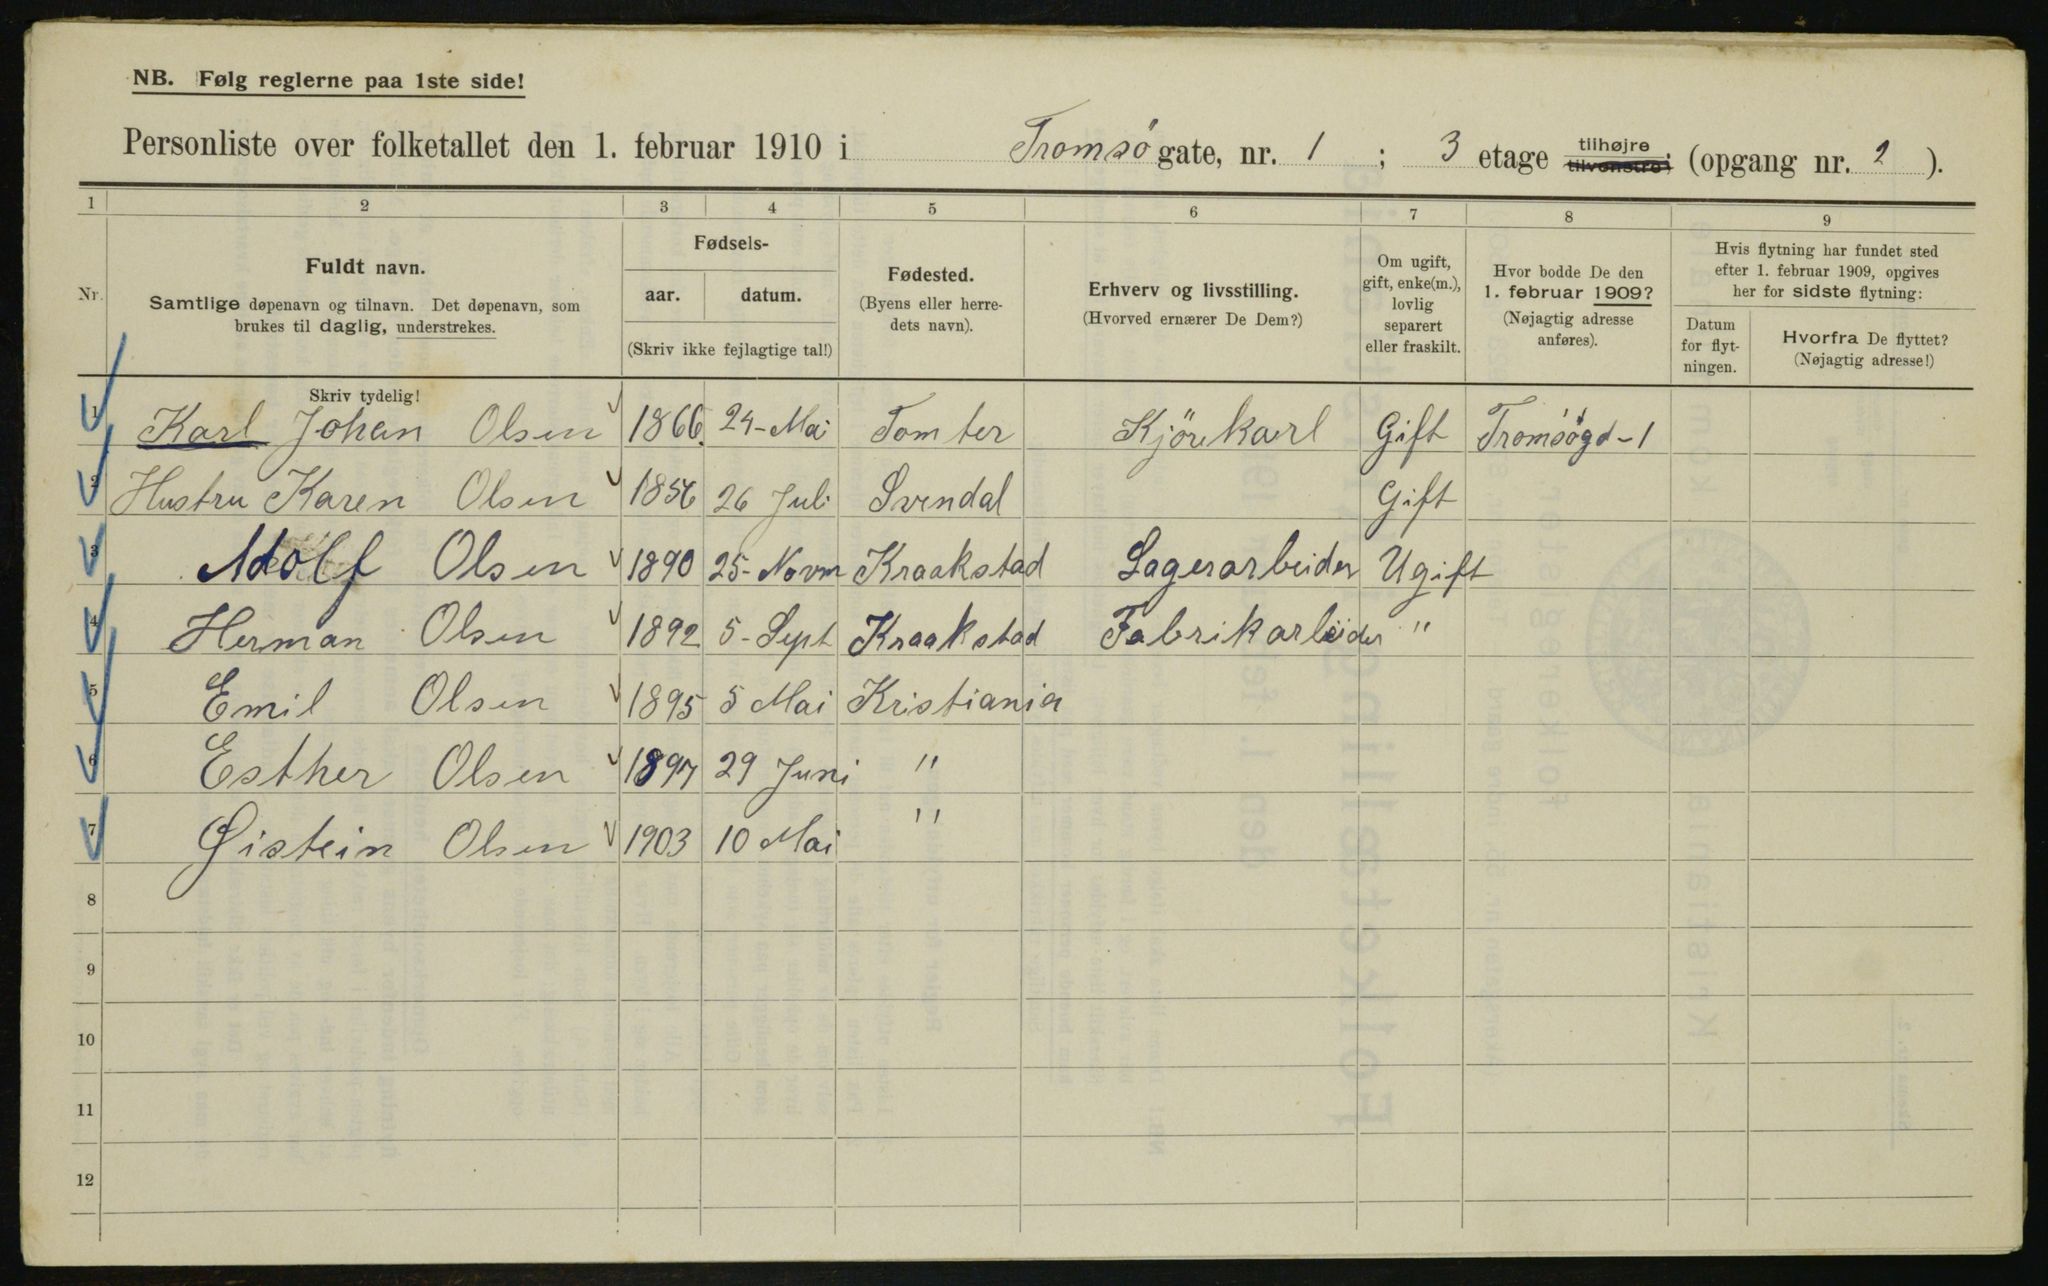 NB. Følg reglerne paa 1ste side!
Personliste over folketallet den 1. februar 1910 i Tromsö gate, nr. 1 ; 3 etage tilhøjre tilvenstre; (opgang nr. 2 ).
1 2 3 4 5 6 7 8 9
Nr.
Fuldt navn.
Samtlige døpenavn og tilnavn. Det døpenavn, som
brukes til daglig, understrekes.
Fødsels-
aar. datum.
(Skriv ikke fejlagtige tal!)
Fødested.
(Byens eller herre-
dets navn).
Erhverv og livsstilling.
(Hvorved ernærer De Dem?)
Om ugift,
gift, enke(m.),
lovlig
separert
eller fraskilt.
Hvor bodde De den
1. februar 1909?
(Nøjagtig adresse
anføres).
Hvis flytning har fundet sted
efter 1. februar 1909, opgives
her for sidste flytning:
Datum
for flyt-
ningen.
Hvorfra De flyttet?
(Nøjagtig adresse!)
Skriv tydelig!
1 Karl Johan Olsen 1866 24-Mai Tomter Kjörekarl Gift Tromsögd-1
2 Hustru Karen Olsen 1856 26 Juli Svendal Gift
3 Adolf Olsen 1890 25-Novm Kraakstad Lagerarbeider Ugift
4 Herman Olsen 1892 5-Sept Kraakstad Fabrikarbeider "
5 Emil Olsen 1895 5 Mai Kristiania
6 Esther Olsen 1897 29 Juni "
7 Øistein Olsen 1903 10 Mai "
8
9
10
11
12